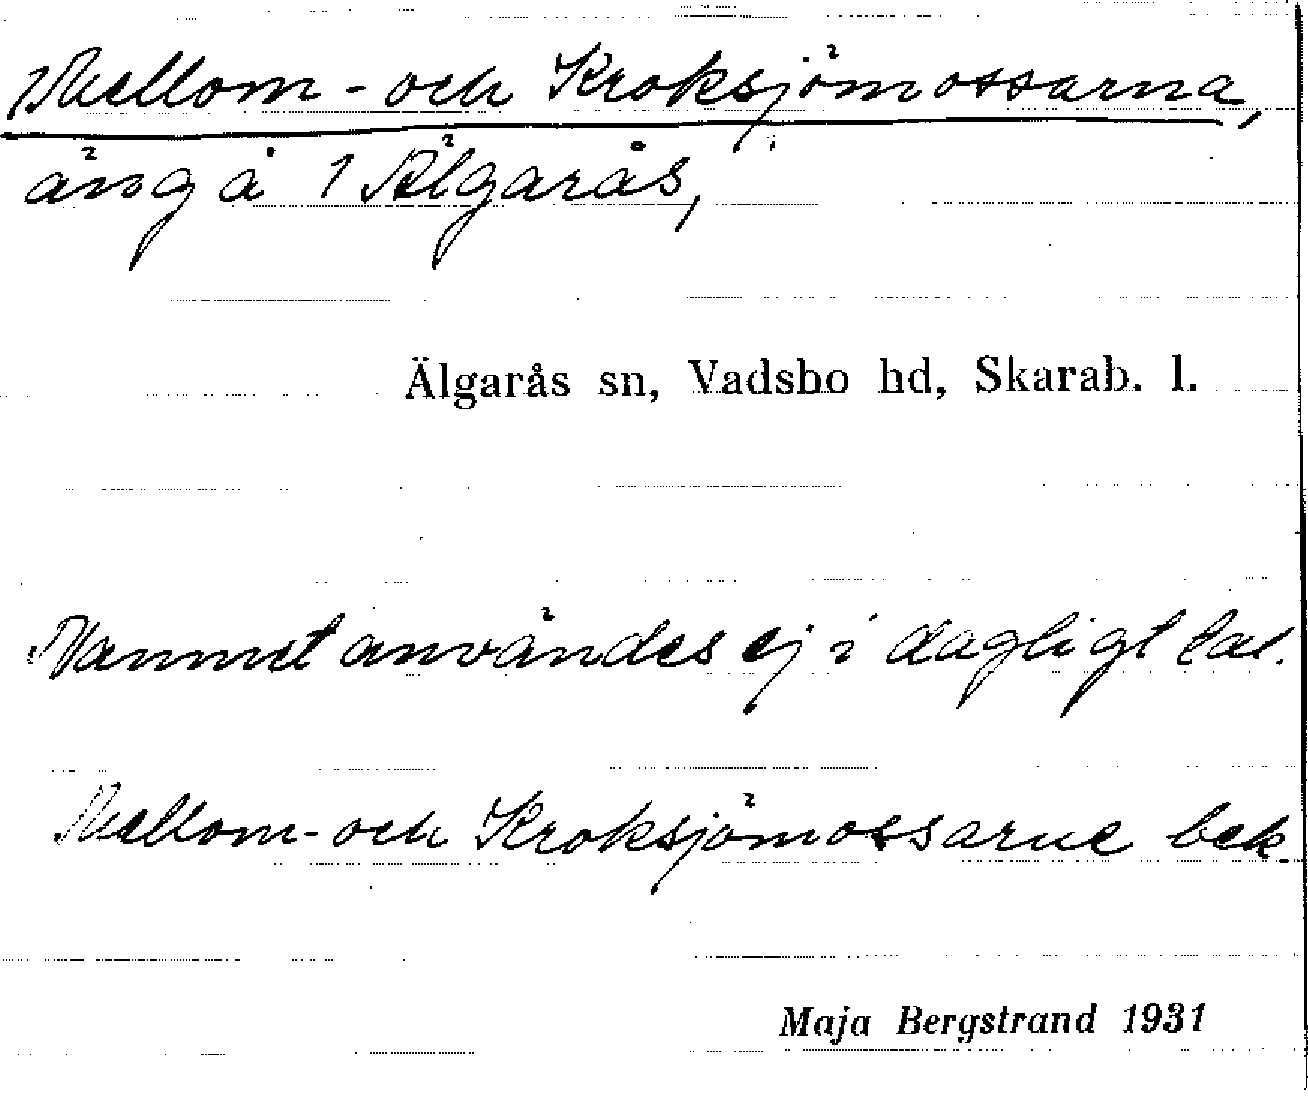 Mellom- och Kroksjömossarna,
äng å 1 Älgarås,
Älgarås sn, Vadsbo hd, Skarab. l.
Namnet användes ej i dagligt tal.
Mellom- och Kroksjömossarne bek.
Maja Bergstrand 1931